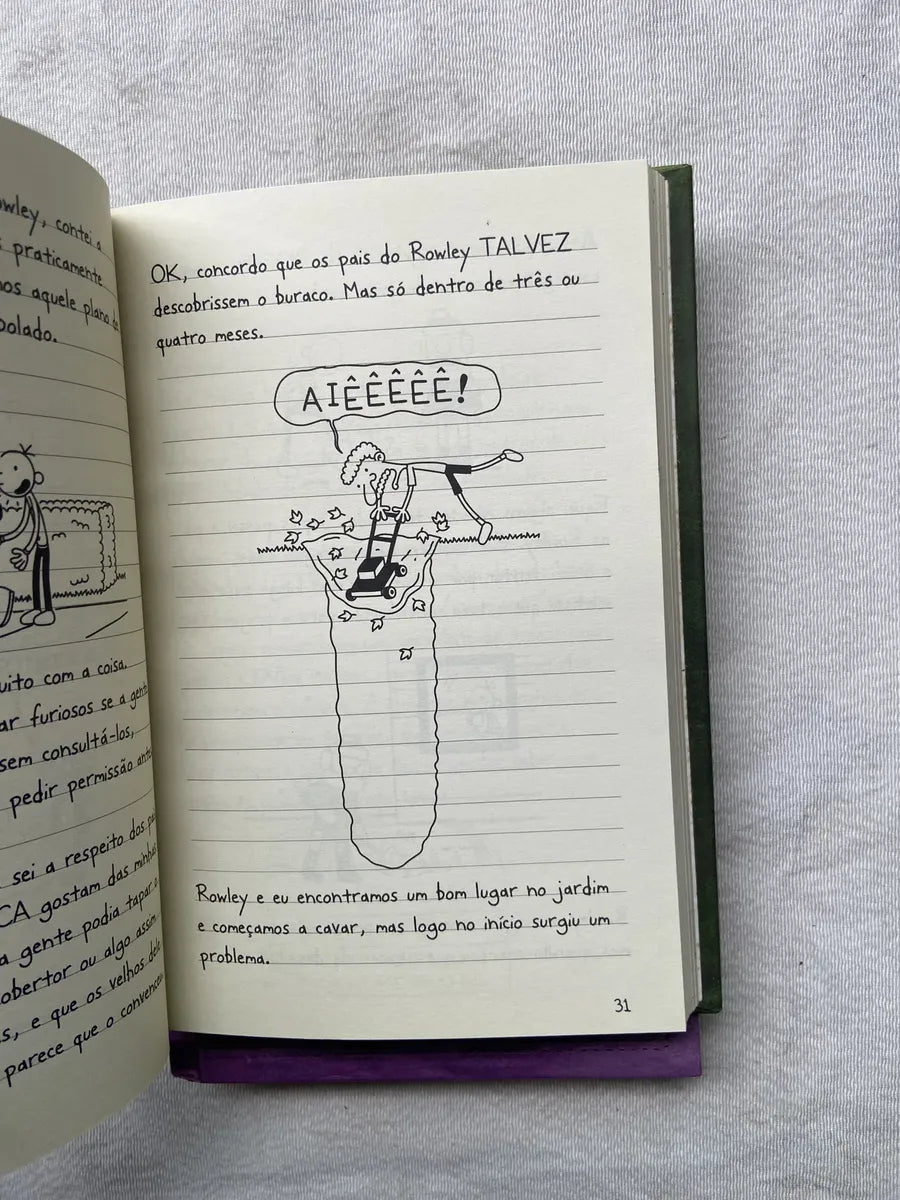 contei a
praticamente
aquele plano
uito com a coisa.
ar furiosos se a gente
sem consultá-los,
pedir permissão
sei a respeito dos
CA gostam das minhas
a gente podia tapar o
obertor ou algo assim
s, e que os velhos dele
parece que o
OK, concordo que os pais do Rowley TALVEZ
descobrissem o buraco. Mas só dentro de três ou
quatro meses.
AIÊÊÊÊÊ!
Rowley e eu encontramos um bom lugar no jardim
e começamos a cavar, mas logo no início surgiu um
problema.
31